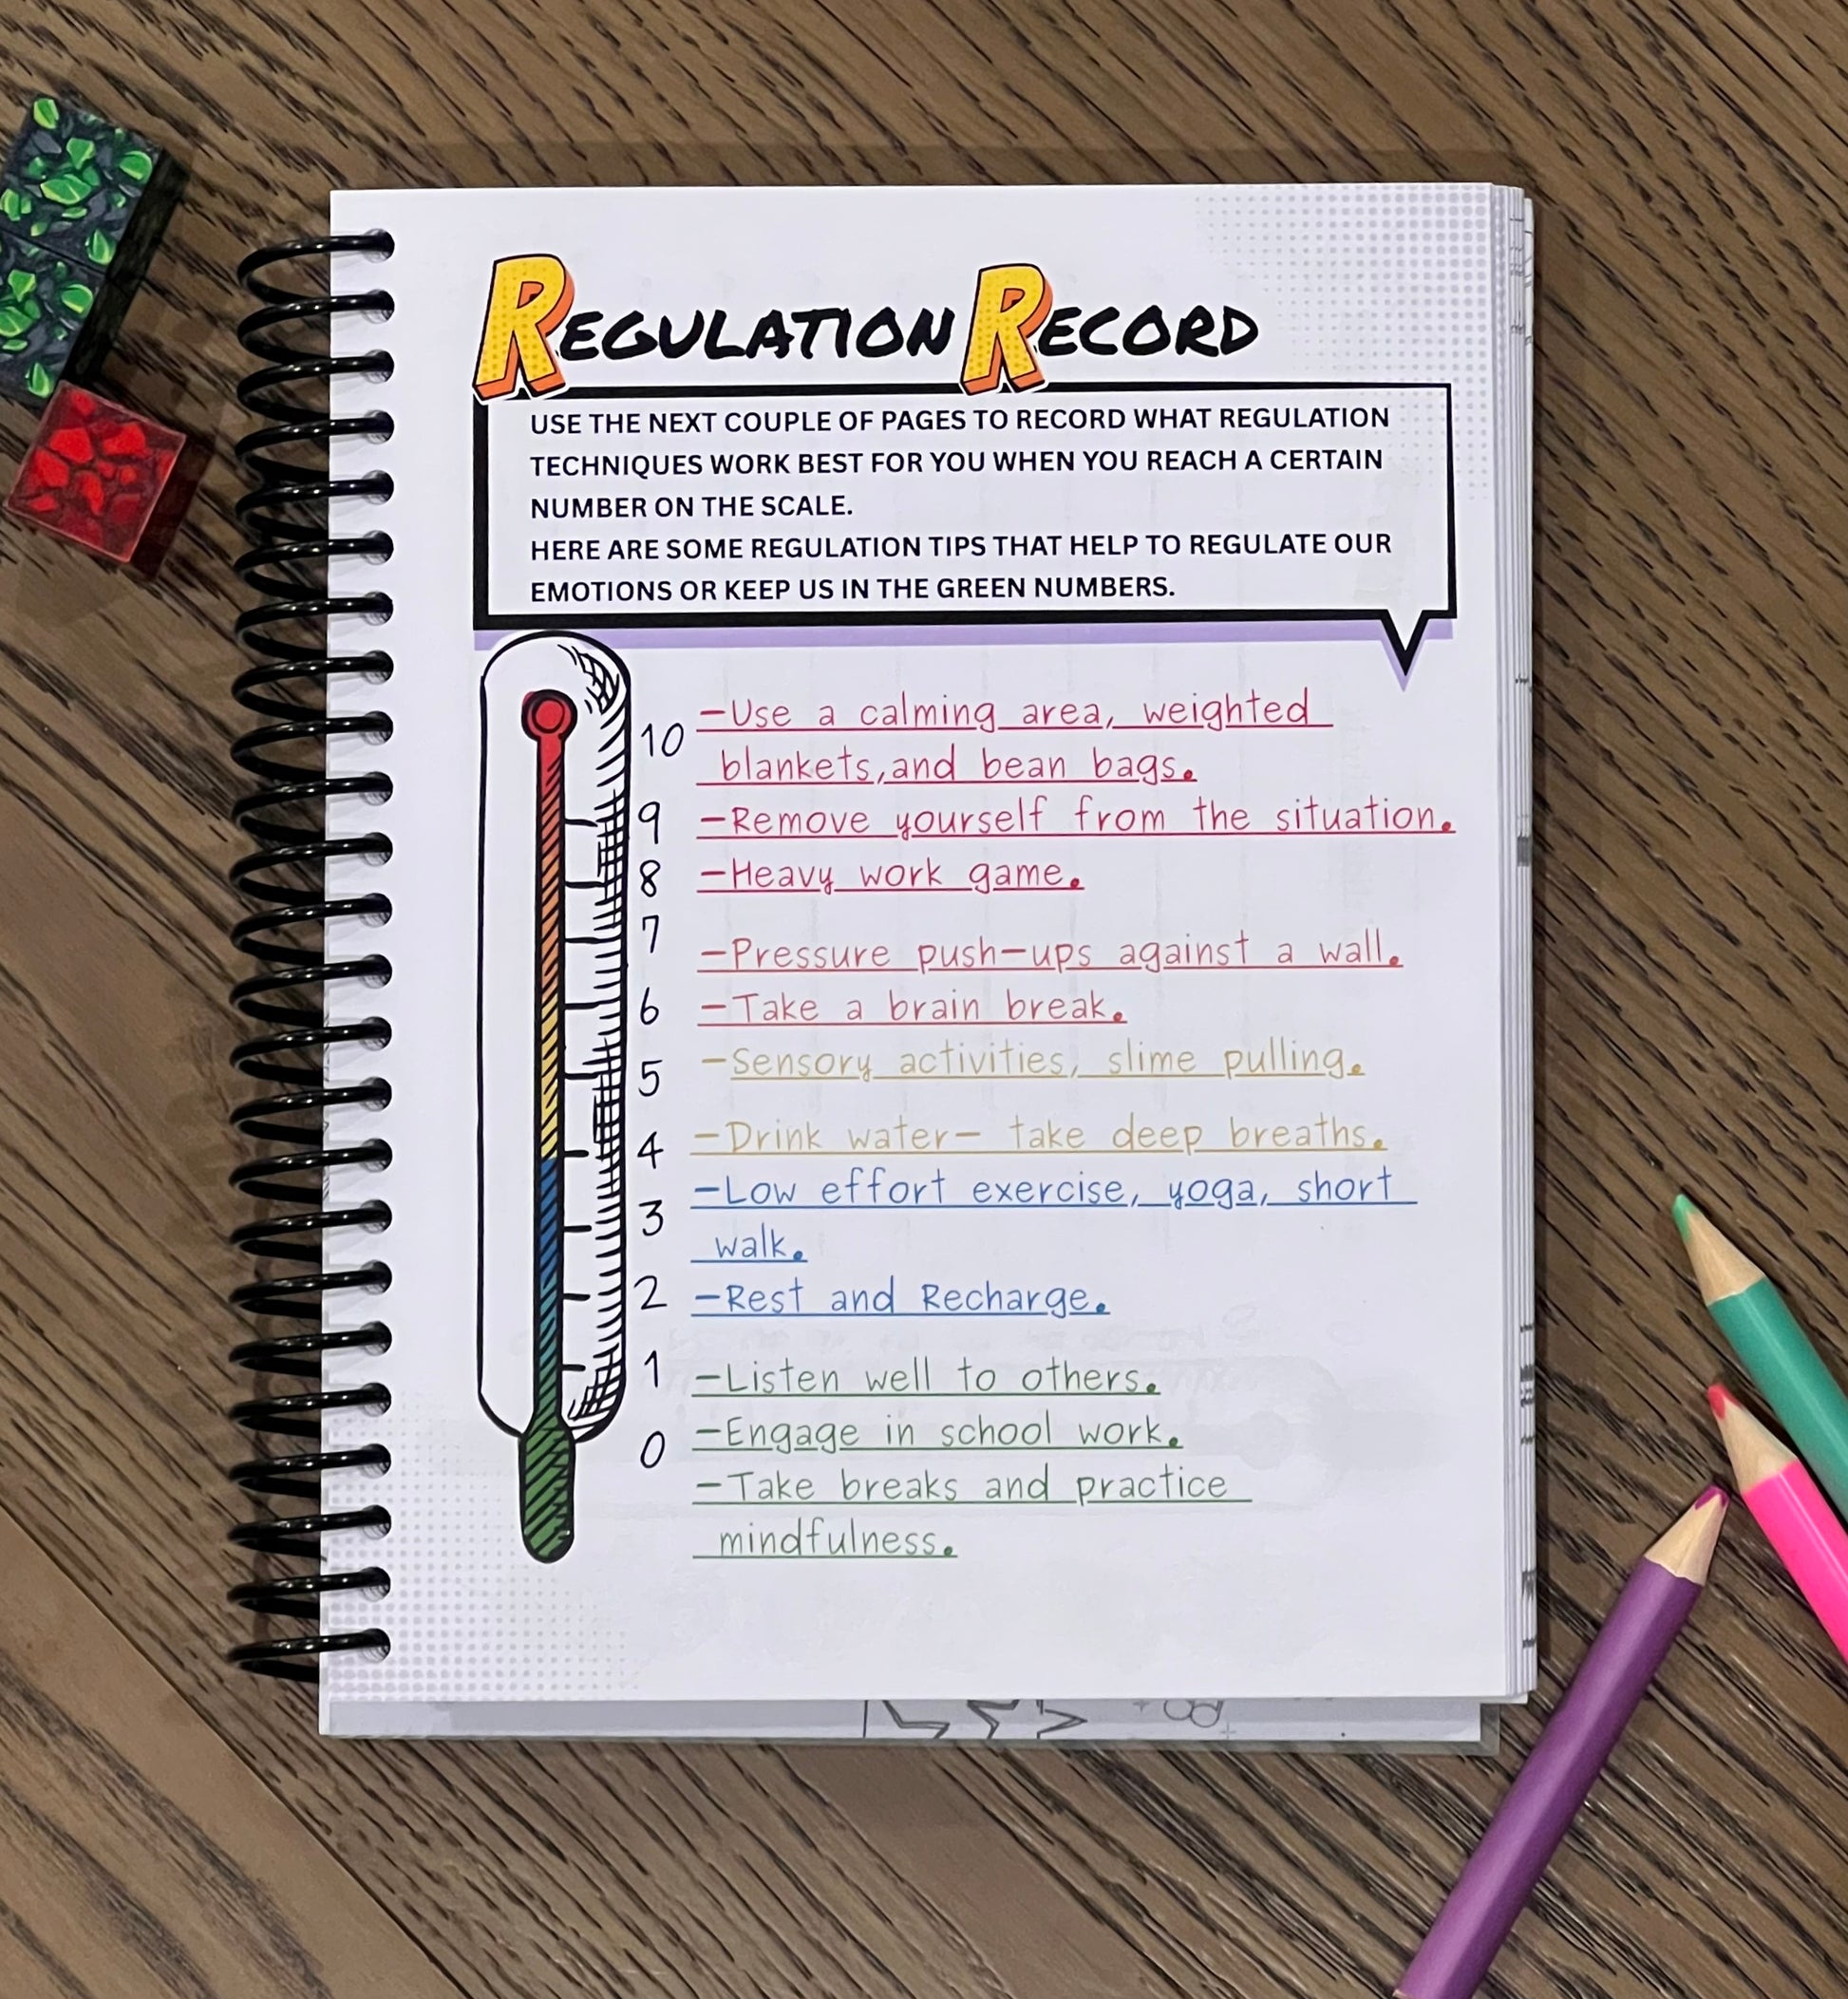 REGULATION RECORD
USE THE NEXT COUPLE OF PAGES TO RECORD WHAT REGULATION
TECHNIQUES WORK BEST FOR YOU WHEN YOU REACH A CERTAIN
NUMBER ON THE SCALE.
HERE ARE SOME REGULATION TIPS THAT HELP TO REGULATE OUR
EMOTIONS OR KEEP US IN THE GREEN NUMBERS.
10 -Use a calming area, weighted
blankets,and bean bags.
9 -Remove yourself from the situation.
8 -Heavy work game.
7 -Pressure push-ups against a wall.
6 -Take a brain break.
5 -Sensory activities, slime pulling.
4 -Drink water- take deep breaths.
3 -Low effort exercise, yoga, short
walk.
2 -Rest and Recharge.
1 -Listen well to others.
0 -Engage in school work.
-Take breaks and practice
mindfulness.